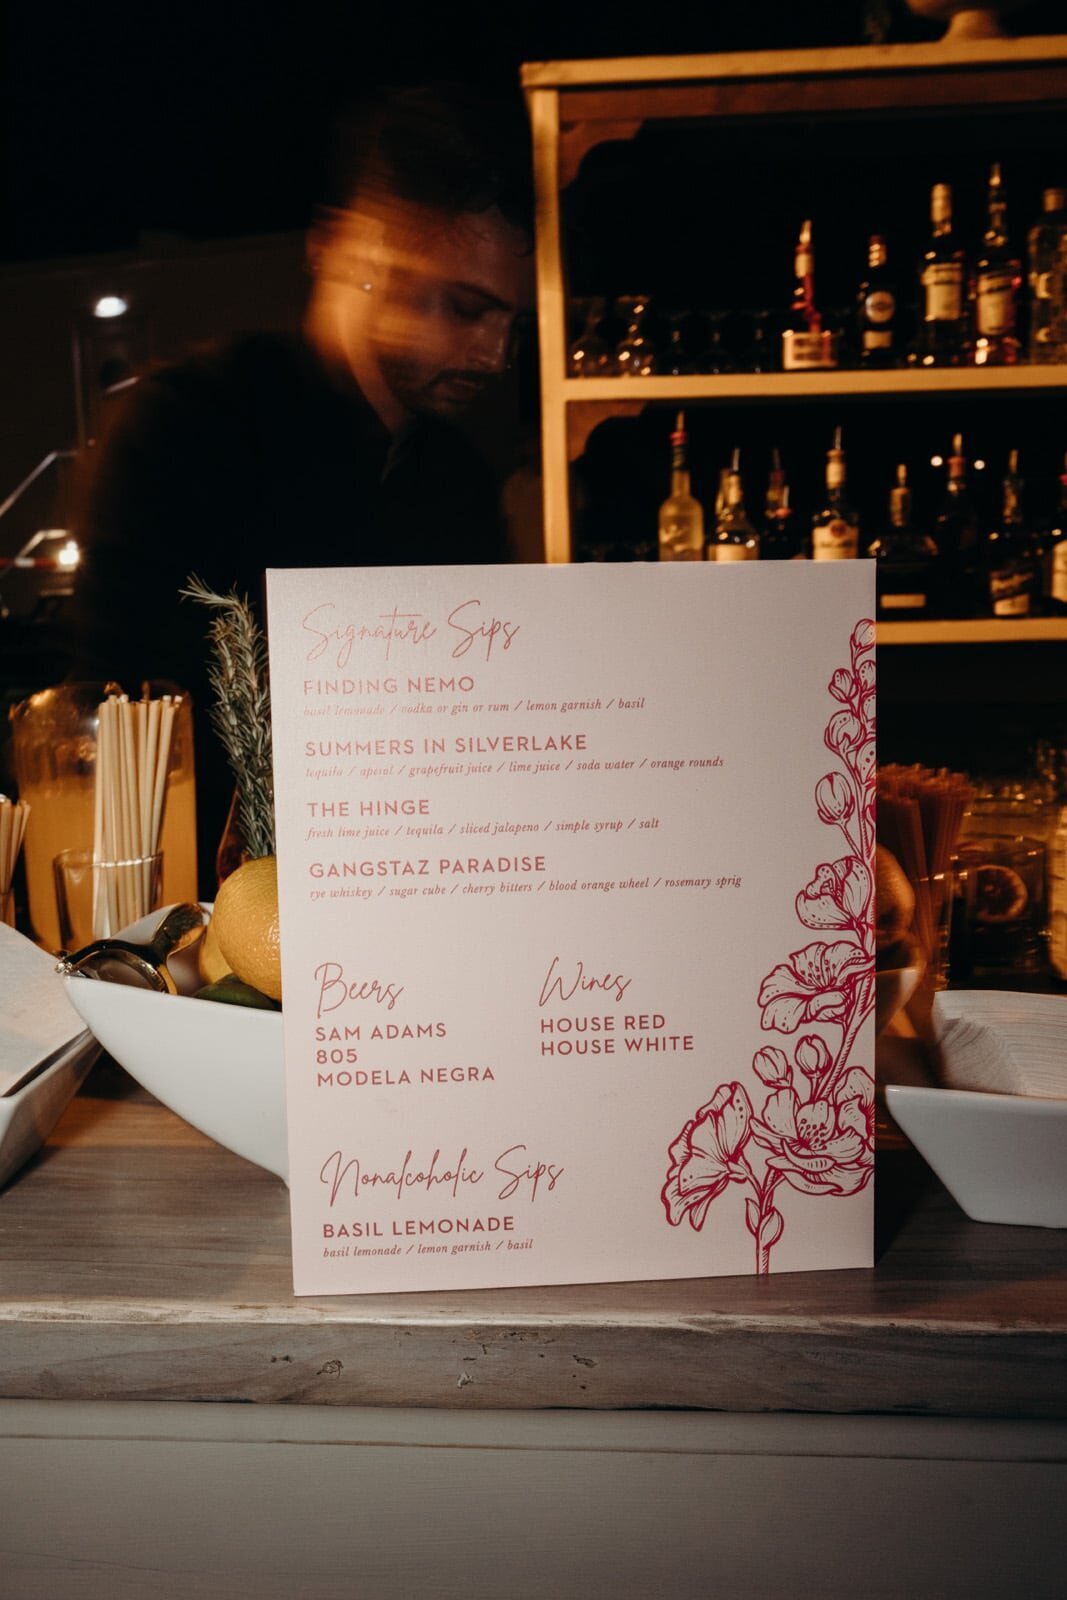 Signature Sips
FINDING NEMO
basil lemonade / vodka or gin or rum / lemon garnish / basil
SUMMERS IN SILVERLAKE
tequila / aperol / grapefruit juice / lime juice / soda water / orange rounds
THE HINGE
fresh lime juice / tequila / sliced jalapeno / simple syrup / salt
GANGSTAZ PARADISE
rye whiskey / sugar cube / cherry bitters / blood orange wheel / rosemary sprig
Beers
SAM ADAMS
805
MODELA NEGRA
Wines
HOUSE RED
HOUSE WHITE
Nonalcoholic Sips
BASIL LEMONADE
basil lemonade / lemon garnish / basil